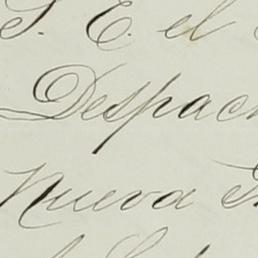 S. E. el
Despac
Nueva